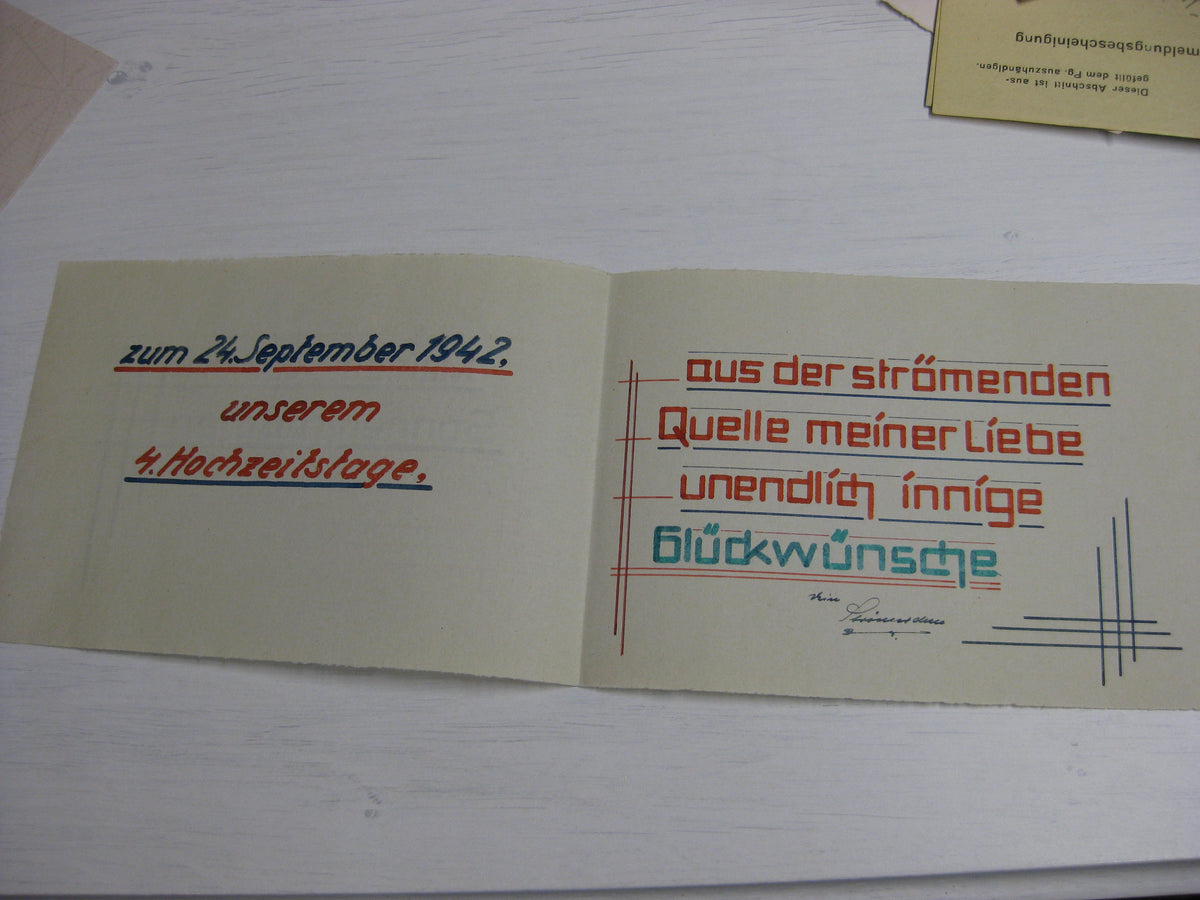 meldungsbescheinigung
Dieser Abschnitt ist aus-
gefüllt dem Pg. auszuhändigen.
zum 24. September 1942.
unserem
4. Hochzeitstage,
aus der strömenden
Quelle meiner Liebe
unendlich innige
Glückwünsche